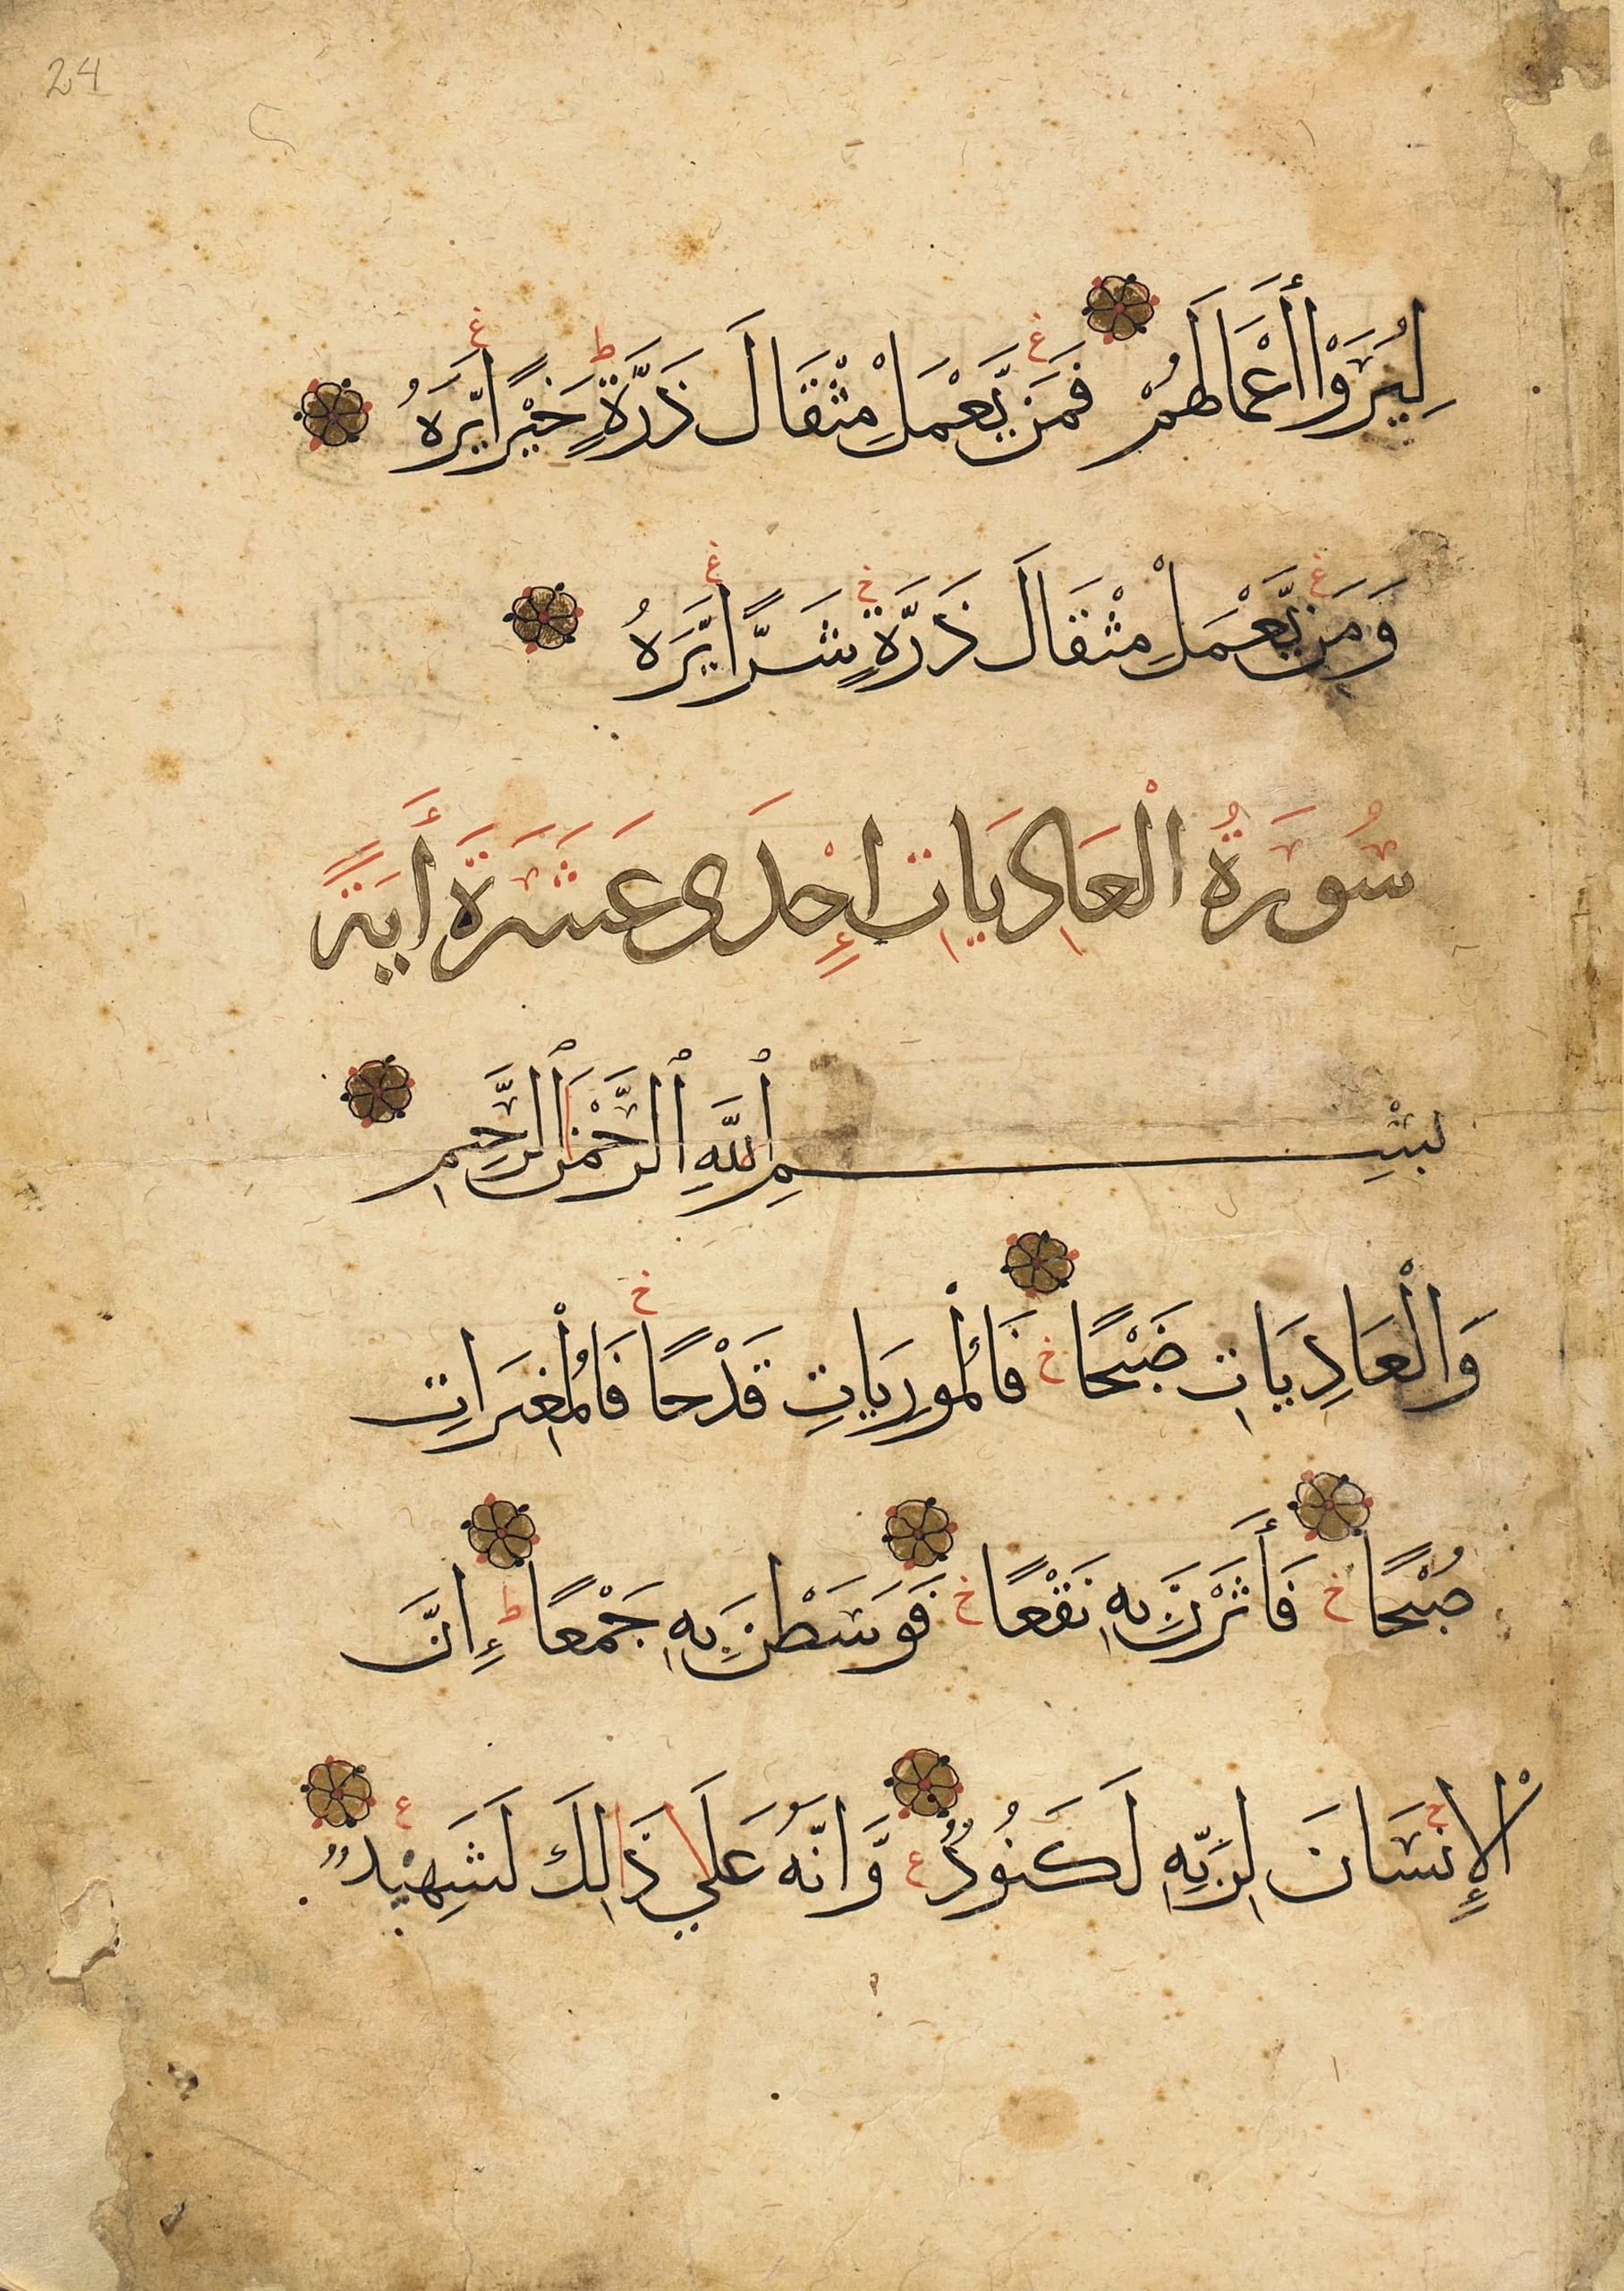 24
لِيُرَوْا أَعْمَالَهُمْ فَمَن يَّعْمَلْ مِثْقَالَ ذَرَّةٍ خَيْرًا يَّرَهُ
وَمَن يَّعْمَلْ مِثْقَالَ ذَرَّةٍ شَرًّا يَّرَهُ
سُورَةُ الْعَادِيَاتِ إِحْدَى عَشَرَةَ أَيَةً
بِسْمِ ٱللَّهِ ٱلرَّحْمَنِ ٱلرَّحِيمِ
وَالْعَادِيَاتِ ضَبْحًا فَالْمُورِيَاتِ قَدْحًا فَالْمُغِيرَاتِ
صُبْحًا فَأَثَرْنَ بِهِ نَقْعًا فَوَسَطْنَ بِهِ جَمْعًا إِنَّ
الْإِنسَانَ لِرَبِّهِ لَكَنُودٌ وَّإِنَّهُ عَلَي ذَالِكَ لَشَهِيْدٌ